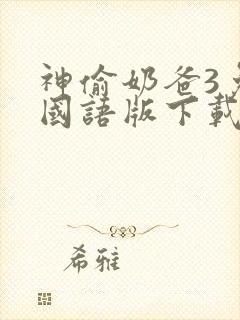 神偷奶爸3
國語版下載
希雅